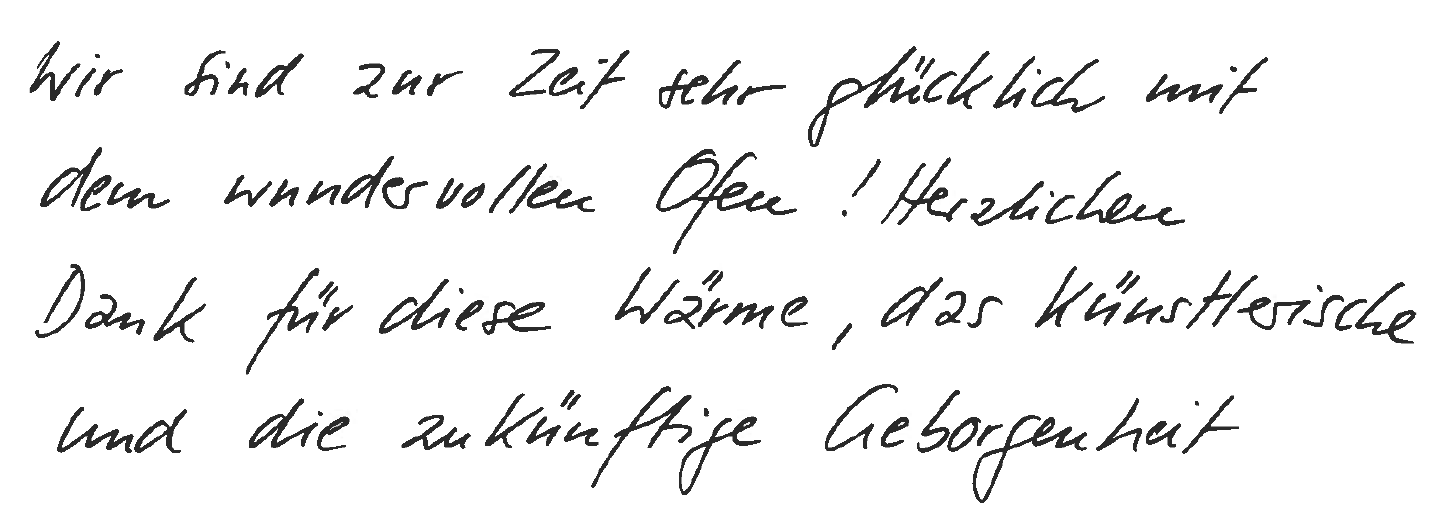 Wir sind zur Zeit sehr glücklich mit
dem wundervollen Ofen! Herzlichen
Dank für diese Wärme, das Künstlerische
und die zukünftige Geborgenheit